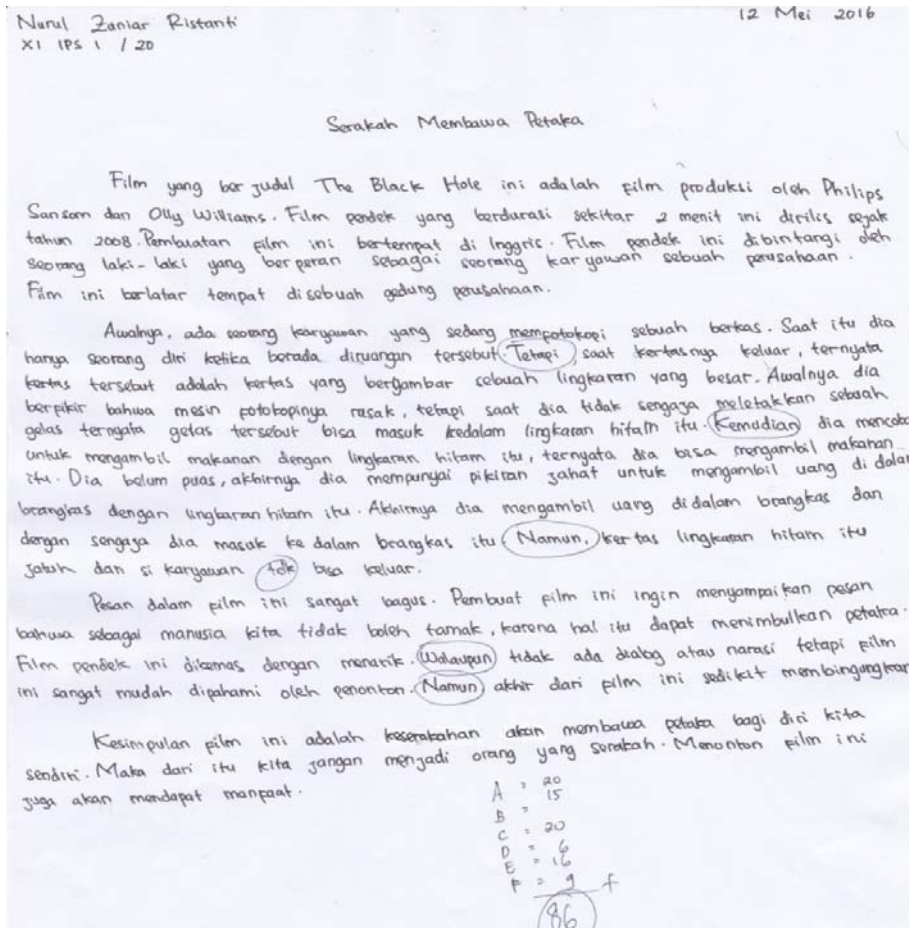 Nurul Zaniar Ristanti
12 Mei 2016
XI IPS 1 / 20
Serakah Membawa Petaka
Film yang berjudul The Black Hole ini adalah film produksi oleh Philips
Sansom dan Olly Williams. Film pendek yang berdurasi sekitar 2 menit ini dirilis sejak
tahun 2008. Pembuatan film ini bertempat di Inggris. Film pendek ini dibintangi oleh
seorang laki-laki yang berperan sebagai seorang karyawan sebuah perusahaan.
Film ini berlatar tempat disebuah gedung perusahaan.
Awalnya, ada seorang karyawan yang sedang mempotokopi sebuah berkas. Saat itu dia
hanya seorang diri ketika berada diruangan tersebut. Tetapi, saat kertasnya keluar, ternyata
kertas tersebut adalah kertas yang bergambar sebuah lingkaran yang besar. Awalnya dia
berpikir bahwa mesin potokopinya rusak, tetapi saat dia tidak sengaja meletakkan sebuah
gelas ternyata gelas tersebut bisa masuk kedalam lingkaran hitam itu. Kemudian dia mencoba
untuk mengambil makanan dengan lingkaran hitam itu, ternyata dia bisa mengambil makanan
itu. Dia belum puas, akhirnya dia mempunyai pikiran jahat untuk mengambil uang di dalam
brangkas dengan lingkaran hitam itu. Akhirnya dia mengambil uang didalam brangkas dan
dengan sengaja dia masuk ke dalam brangkas itu. Namun, kertas lingkaran hitam itu
jatuh dan si karyawan tdk bisa keluar.
Pesan dalam film ini sangat bagus. Pembuat film ini ingin menyampaikan pesan
bahwa sebagai manusia kita tidak boleh tamak, karena hal itu dapat menimbulkan petaka.
Film pendek ini dikemas dengan menarik. Walaupun tidak ada dialog atau narasi tetapi film
ini sangat mudah dipahami oleh penonton. Namun akhir dari film ini sedikit membingungkan
Kesimpulan film ini adalah keserakahan akan membawa petaka bagi diri kita
sendiri. Maka dari itu kita jangan menjadi orang yang serakah. Menonton film ini
juga akan mendapat manpaat.
A = 20
B = 15
C = 20
D = 6
E = 16
F = 9 +
86